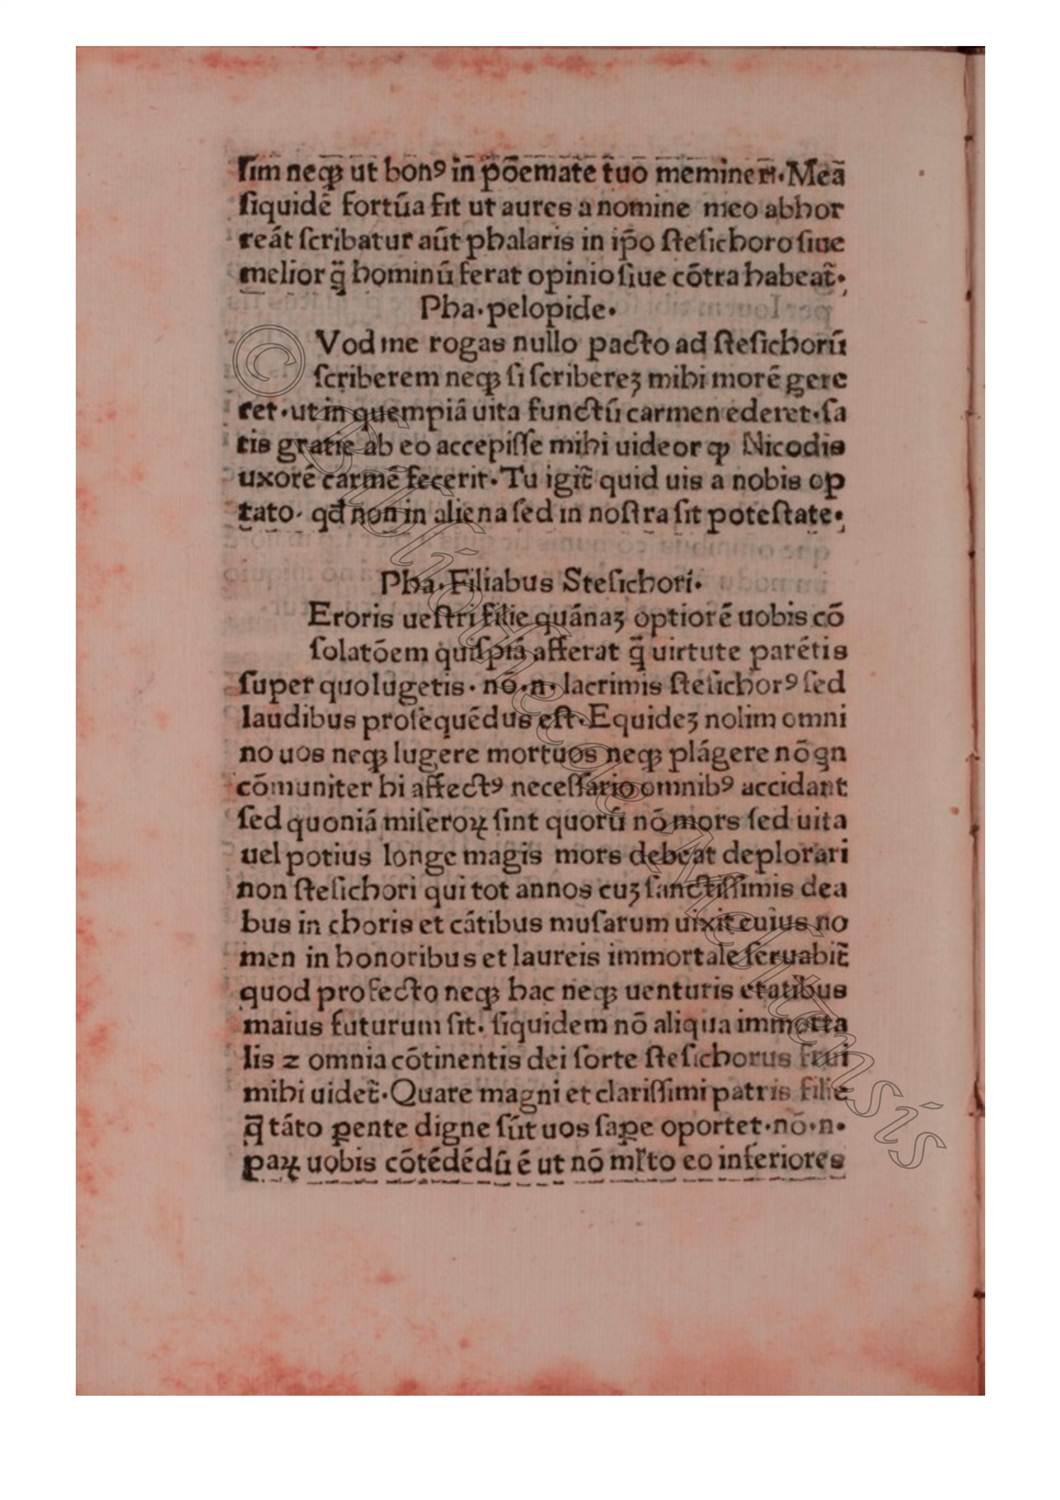 sim neqꝫ ut bonꝰ in põemate tuo memineri̅. Meã
siquidẽ fortũa fit ut aures a nomine meo abhor
reãt scribatur aũt phalaris in ip̃o stesichoro siue
melior q̃ hominũ ferat opinio siue cõtra habeat̃.
Pha. pelopide.
Vod me rogas nullo pacto ad stesichorũ
scriberem neqꝫ si scribereꝫ mihi morẽ gere
ret. ut in quempiã uita functũ carmen ederet. sa
tis gratie ab eo accepisse mihi uideor ꝙ Nicodis
uxorẽ carmẽ fecerit. Tu igit̃ quid uis a nobis op
tato. qd̃ non in aliena sed in nostra sit potestate.
Pha. Filiabus Stesichori.
Eroris uestri filie quãnaꝫ optiorẽ uobis cõ
solatõem quispiã afferat q̃ uirtute parẽtis
super quo lugetis. nõ. n. lacrimis stesichorꝰ sed
laudibus prosequẽdus est. Equideꝫ nolim omni
no uos neqꝫ lugere mortuos neqꝫ plãgere nõ qn
cõmuniter hi affectꝰ necessario omnibꝰ accidant
sed quoniã miseroꝝ sint quorũ nõ mors sed uita
uel potius longe magis mors debeat deplorari
non stesichori qui tot annos cuꝫ sanctissimis dea
bus in choris et cãtibus musarum uixit cuius no
men in honoribus et laureis immortale seruabit̃
quod profecto neqꝫ hac neqꝫ uenturis etatibus
maius futurum sit. siquidem nõ aliqua immorta
lis ⁊ omnia cõtinentis dei sorte stesichorus frui
mihi uidet̃. Quare magni et clarissimi patris filie
q̃ tãto ꝑente digne sũt uos saꝑe oportet. nõ. n.
paꝝ uobis cõtẽdẽdũ ẽ ut nõ mr̃to eo inferiores
© Bibliotheca Richtansis